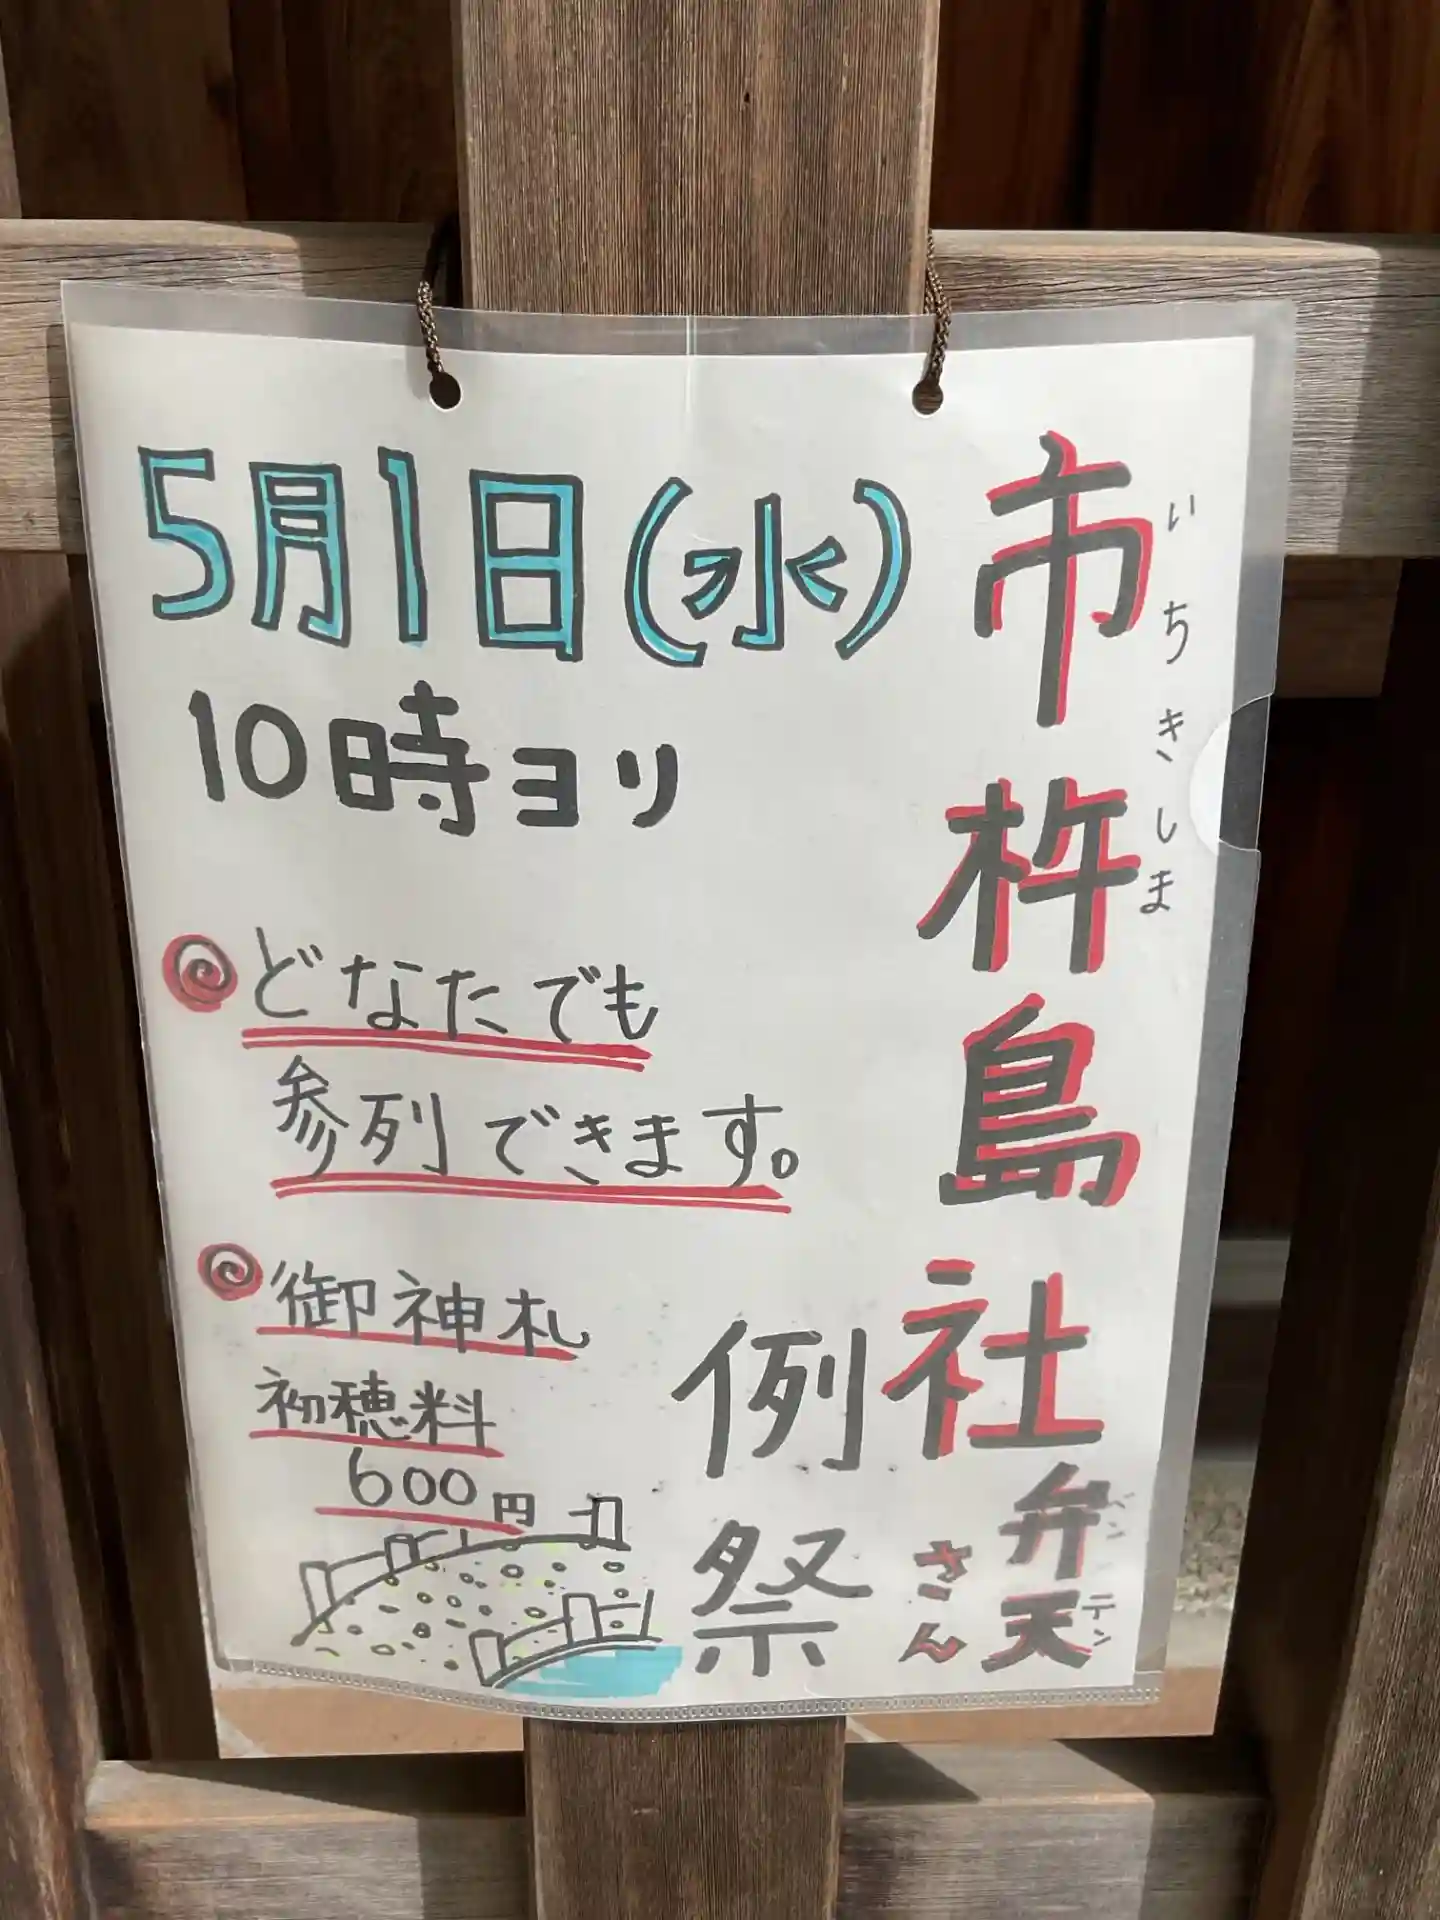 市杵島社
いちきしま
弁天さん
ベンテン
例祭
5月1日(水)
10時ヨリ
どなたでも
参列できます。
御神札
初穂料
600円